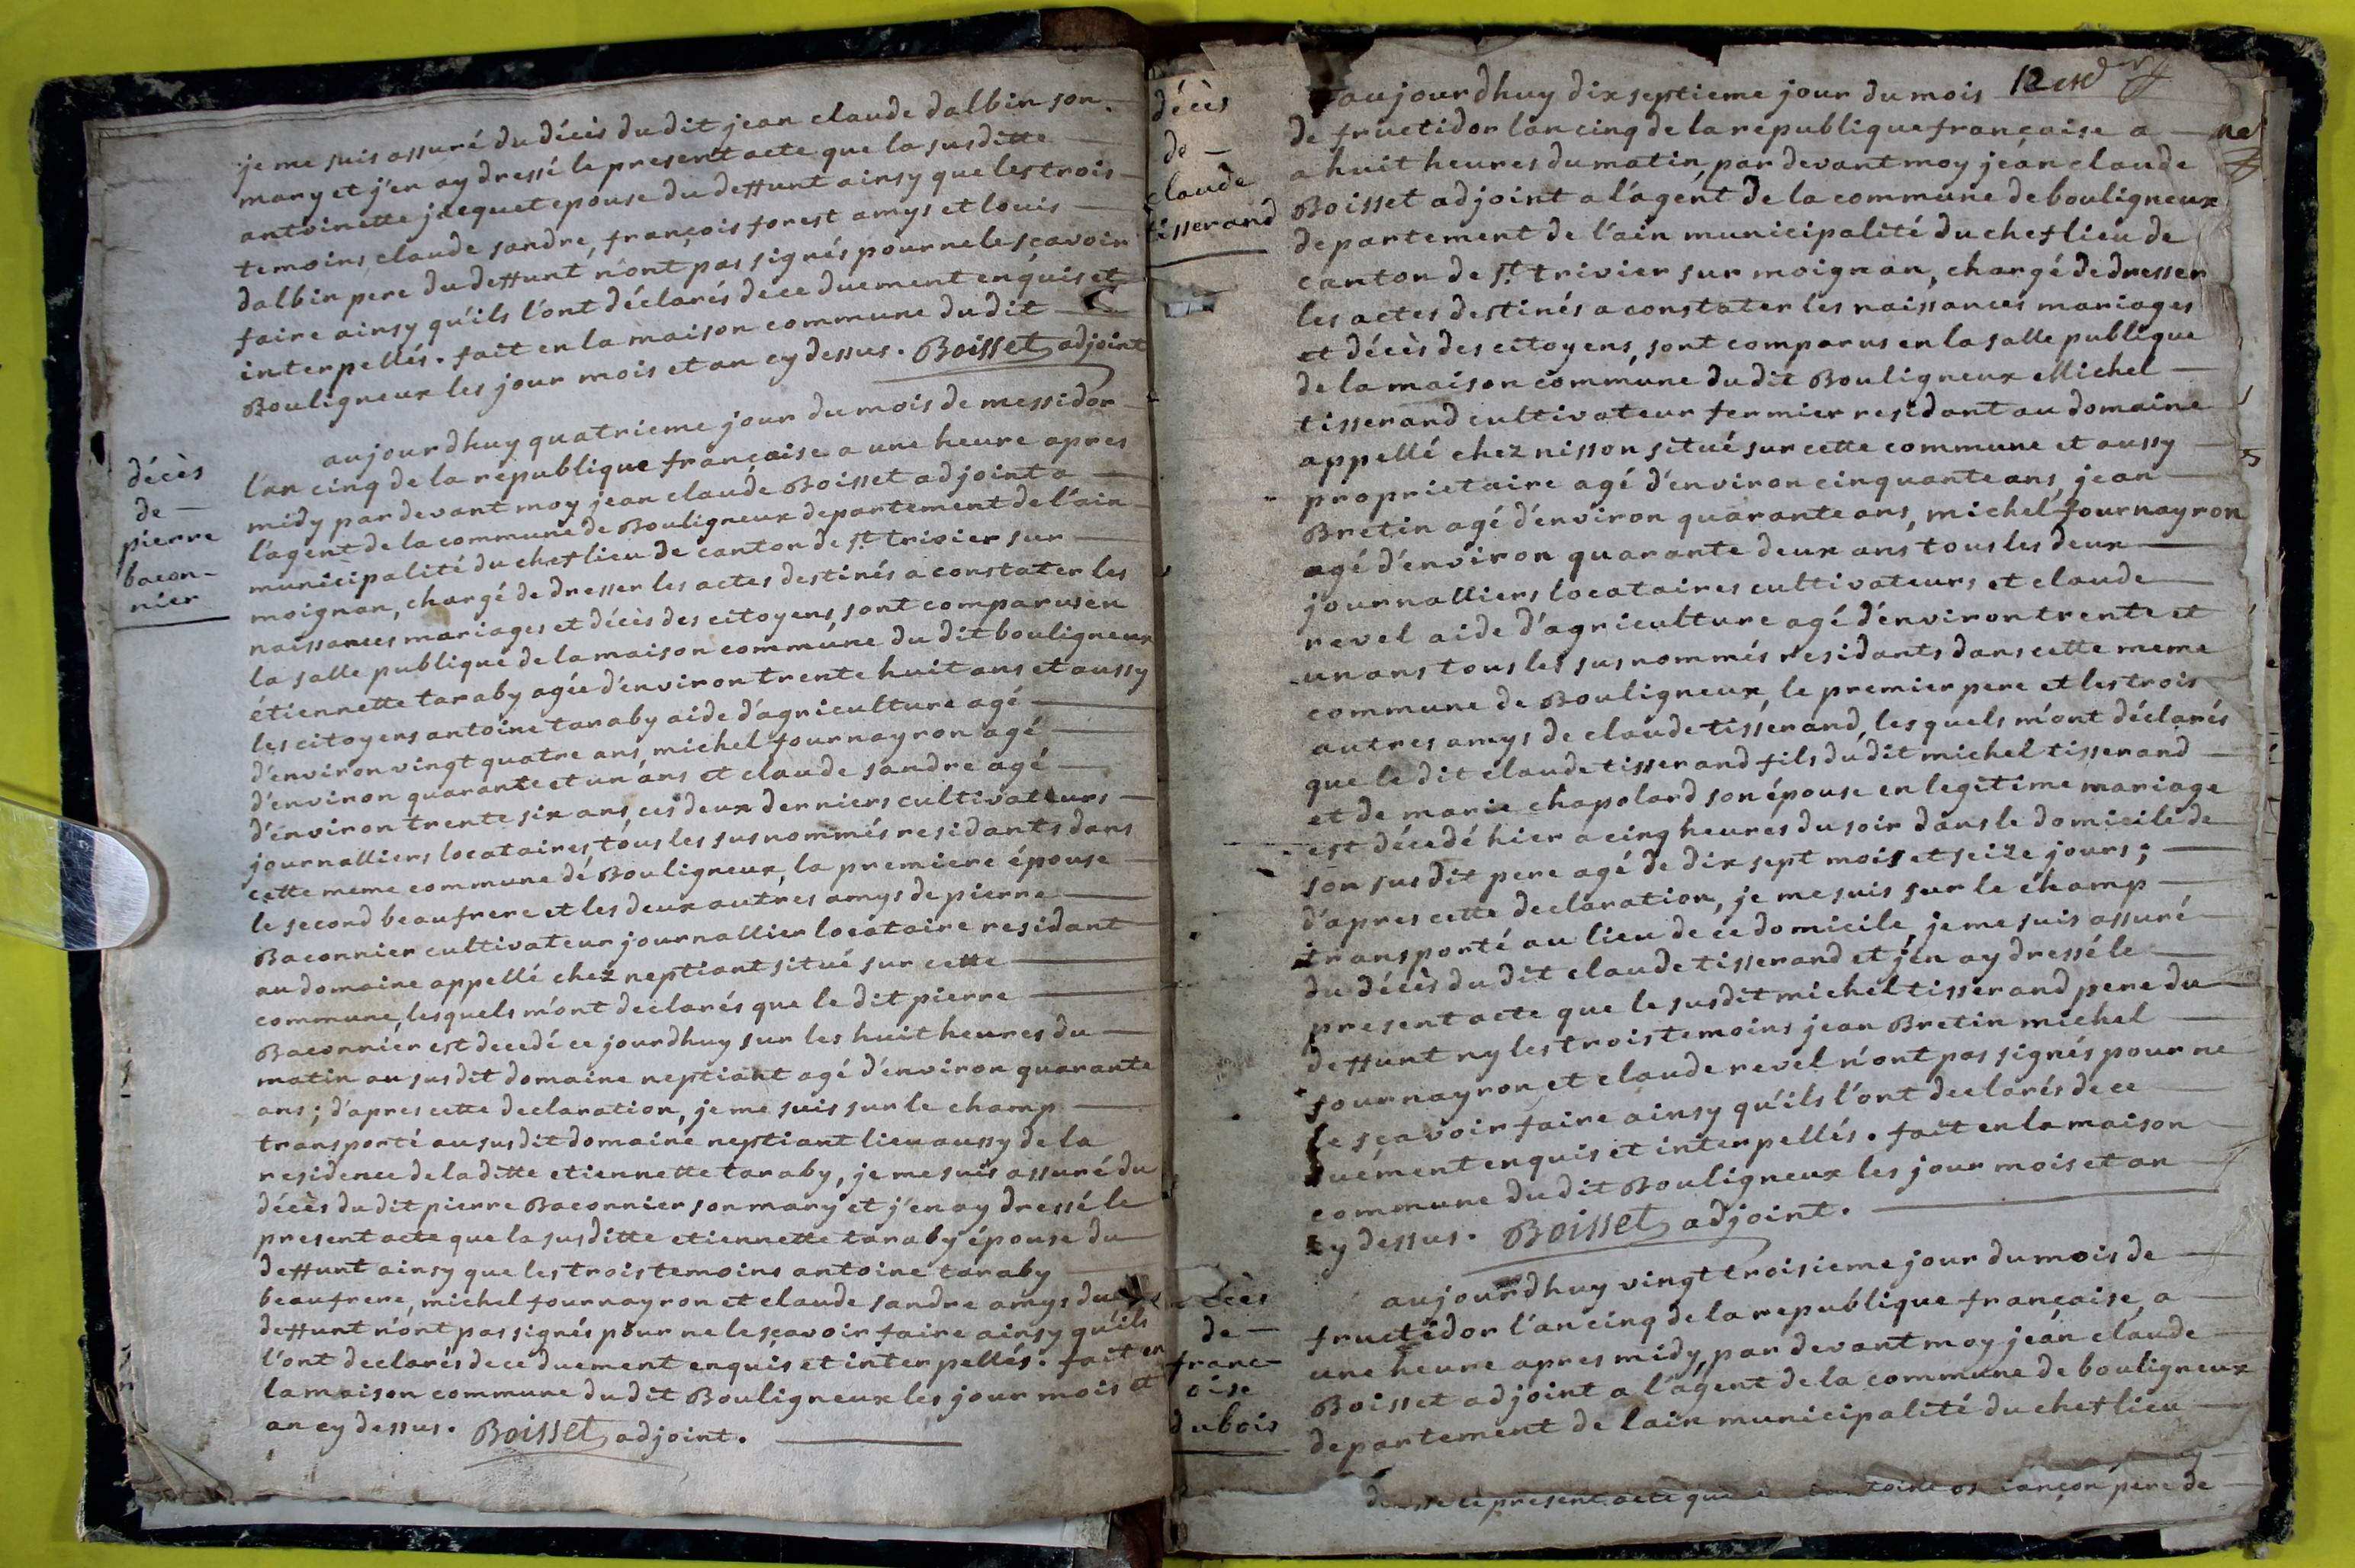 je me suis assuré du décès du dit jean claude dalbin son
mary et j'en ay dressé le present acte que la susditte
antoinette jacquet epouse du deffunt ainsy que les trois
temoins claude sandre, françois forest amys et louis
dalbin pere du deffunt n'ont pas signés pour ne le sçavoir
faire ainsy qu'ils l'ont déclarés de ce duement enquis et
interpellés. fait en la maison commune du dit
Bouligneux les jour mois et an cy dessus. Boisset adjoint
décès
de
pierre
bacon-
nier
aujourdhuy quatrieme jour du mois de messidor
l'an cinq de la république française a une heure apres
midy par devant moy jean claude Boisset adjoint a
l'agent de la commune de Bouligneux departement de l'ain
municipalité du chef lieu de canton de st. trivier sur
moignan, chargé de dresser les actes destinés a constater les
naissances mariages et décès des citoyens, sont comparus en
la salle publique de la maison commune du dit bouligneux
étiennette taraby agée d'environ trente huit ans et aussy
les citoyens antoine taraby aide d'agriculture agé
d'environ vingt quatre ans, michel fournayron agé
d'environ quarante et un ans et claude sandre agé
d'environ trente six ans, ces deux derniers cultivateurs
journalliers locataires, tous les susnommés residants dans
cette meme commune de Bouligneux, la premiere épouse
le second beaufrere et les deux autres amys de pierre
Baconnier cultivateur journallier locataire residant
au domaine appellé chez neptiant situé sur cette
commune, lesquels m'ont declarés que le dit pierre
Baconnier est decedé ce jourdhuy sur les huit heures du
matin au susdit domaine neptiant agé d'environ quarante
ans; d'apres cette declaration, je me suis sur le champ
transporté au susdit domaine neptiant lieu aussy de la
residence de la ditte etiennette taraby, je me suis assuré du
décès du dit pierre Baconnier son mary et j'en ay dressé le
present acte que la susditte etiennette taraby épouse du
deffunt ainsy que les trois temoins antoine taraby
beaufrere, michel fournayron et claude sandre amys du
deffunt n'ont pas signés pour ne le sçavoir faire ainsy qu'ils
l'ont declarés de ce duement enquis et interpellés. fait en
la maison commune du dit Bouligneux les jour mois et
an cy dessus. Boisset adjoint.
12
décès
de
claude
tisserand
aujourdhuy dix septieme jour du mois
de fructidor l'an cinq de la republique française a
a huit heures du matin, par devant moy jean claude
Boisset adjoint a l'agent de la commune de bouligneux
departement de l'ain municipalité du chef lieu de
canton de st. trivier sur moignan, chargé de dresser
les actes destinés a constater les naissances mariages
et décès des citoyens, sont comparus en la salle publique
de la maison commune du dit Bouligneux Michel
tisserand cultivateur fermier residant au domaine
appellé chez nisson situé sur cette commune et aussy
proprietaire agé d'environ cinquante ans, jean
Bretin agé d'environ quarante ans, michel fournayron
agé d'environ quarante deux ans tous les deux
journalliers locataires cultivateurs et claude
revel aide d'agriculture agé d'environ trente et
un ans tous les susnommés residants dans cette meme
commune de Bouligneux, le premier pere et les trois
autres amys de claude tisserand, lesquels m'ont déclarés
que le dit claude tisserand fils du dit michel tisserand
et de marie chapolard son épouse en legitime mariage
est décedé hier a cinq heures du soir dans le domicile de
son susdit pere agé de dix sept mois et seize jours;
d'apres cette declaration, je me suis sur le champ
transporté au lieu de ce domicile, je me suis assuré
du décès du dit claude tisserand et j'en ay dressé le
present acte que le susdit michel tisserand pere du
deffunt ny les trois temoins jean Bretin michel
fournayron et claude revel n'ont pas signés pour ne
le sçavoir faire ainsy qu'ils l'ont declarés de ce
duément enquis et interpellés. fait en la maison
commune du dit Bouligneux les jour mois et an
cy dessus. Boisset adjoint.
décès
de
franc-
oise
dubois
aujourdhuy vingt troisieme jour du mois de
fructidor l'an cinq de la republique française, a
une heure apres midy, par devant moy jean claude
Boisset adjoint a l'agent de la commune de bouligneux
departement de l'ain municipalité du chef lieu
le present acte que pere de